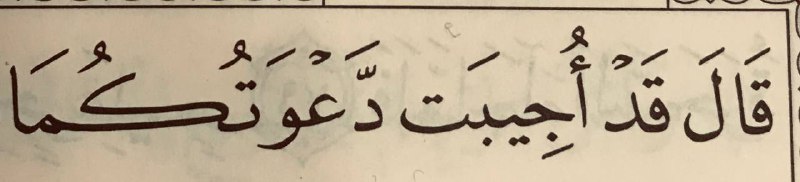 قَالَ قَدْ أُجِيبَت دَّعْوَتُكُمَا